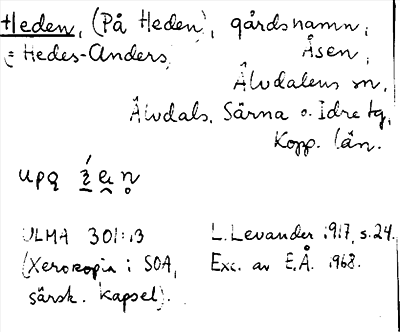 Heden, (På Heden), gårdsnamn i
= Hedes-Anders, Åsen,
Älvdalens sn,
Älvdals, Särna o. Idre tg,
Kopp. län.
upą
ULMA 301:13 L. Levander 1917, s. 24.
(Xerokopia i SOA, Exc. av E.Å. 1968.
särsk. kapsel).